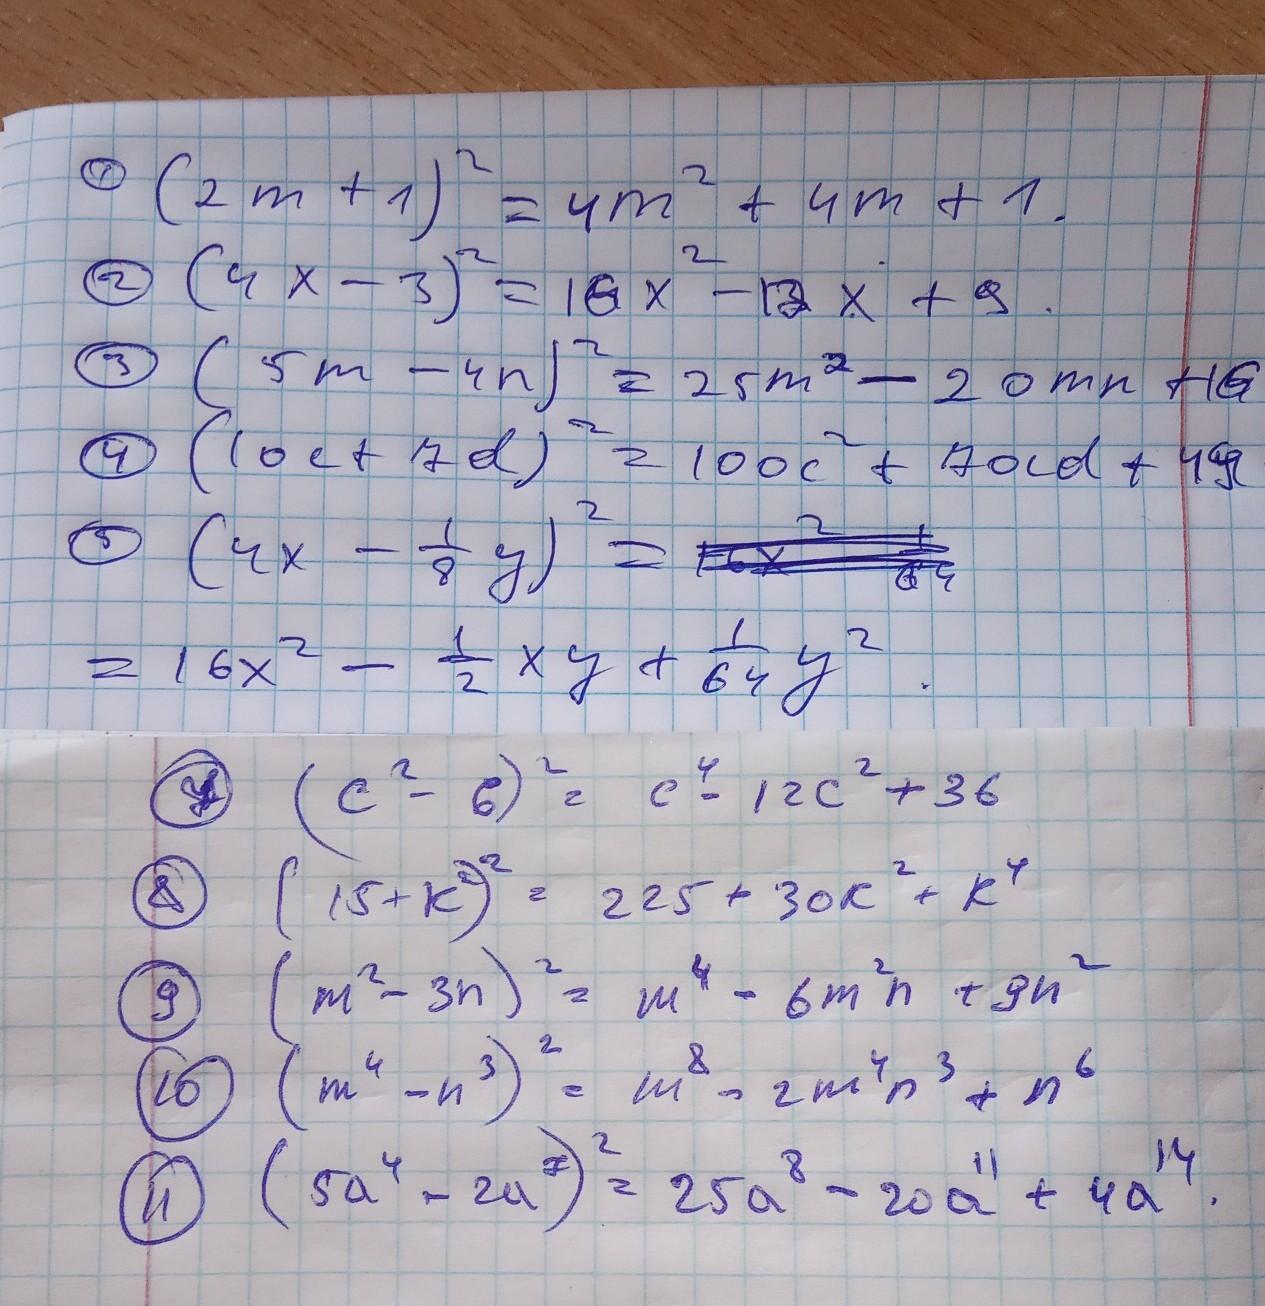 ① (2m + 1)² = 4m² + 4m + 1.
② (4x - 3)² = 16x² - 12x + 9.
③ (5m - 4n)² = 25m² - 20mn + 16
④ (10c + 7d)² = 100c² + 70cd + 49
⑤ (4x - 1/8 y)² =
= 16x² - 1/2 xy + 1/64 y².
⑦ (c² - 6)² = c⁴ - 12c² + 36
⑧ (15 + k²)² = 225 + 30k² + k⁴
⑨ (m² - 3n)² = m⁴ - 6m²n + 9n²
⑩ (m⁴ - n³)² = m⁸ - 2m⁴n³ + n⁶
⑪ (5a⁴ - 2a⁷)² = 25a⁸ - 20a¹¹ + 4a¹⁴.